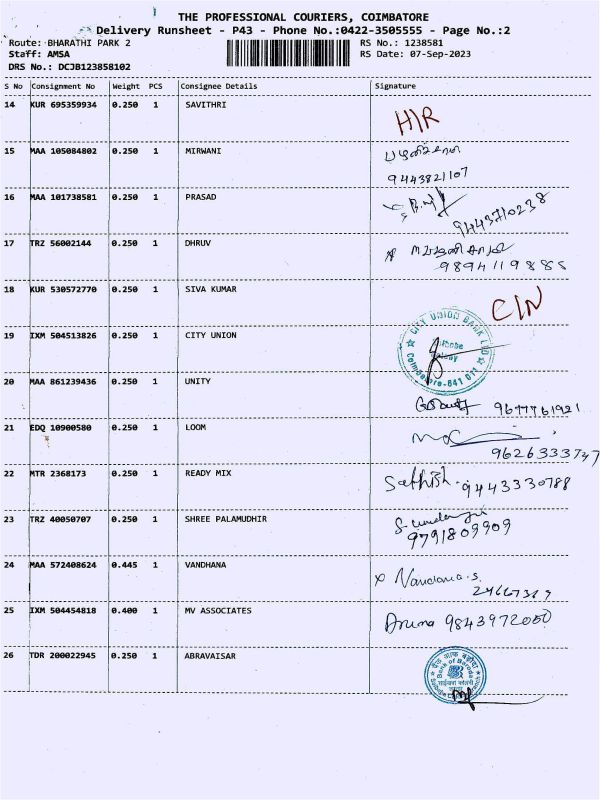 THE PROFESSIONAL COURIERS, COIMBATORE
Delivery Runsheet - P43 - Phone No.:0422-3505555 - Page No.:2
Route: BHARATHI PARK 2 RS No.: 1238581
Staff: AMSA RS Date: 07-Sep-2023
DRS No.: DCJB123858102
S No Consignment No Weight PCS Consignee Details Signature
14 KUR 695359934 0.250 1 SAVITHRI H/R
15 MAA 105084802 0.250 1 MIRWANI
9443821107
16 MAA 101738581 0.250 1 PRASAD
9443710238
17 TRZ 56002144 0.250 1 DHRUV
9894119885
18 KUR 530572770 0.250 1 SIVA KUMAR C/N
19 IXM 504513826 0.250 1 CITY UNION CITY UNION BANK LTD
Coimbatore-641 011
20 MAA 861239436 0.250 1 UNITY
9677761921
21 EDQ 10900580 0.250 1 LOOM
9626333747
22 MTR 2368173 0.250 1 READY MIX Sathish. 9443330788
23 TRZ 40050707 0.250 1 SHREE PALAMUDHIR
9791809909
24 MAA 572408624 0.445 1 VANDHANA x Vandana.s.
25 IXM 504454818 0.400 1 MV ASSOCIATES Aruna 9843972050
26 TDR 200022945 0.250 1 ABRAVAISAR बैंक ऑफ बड़ौदा
Bank of Baroda